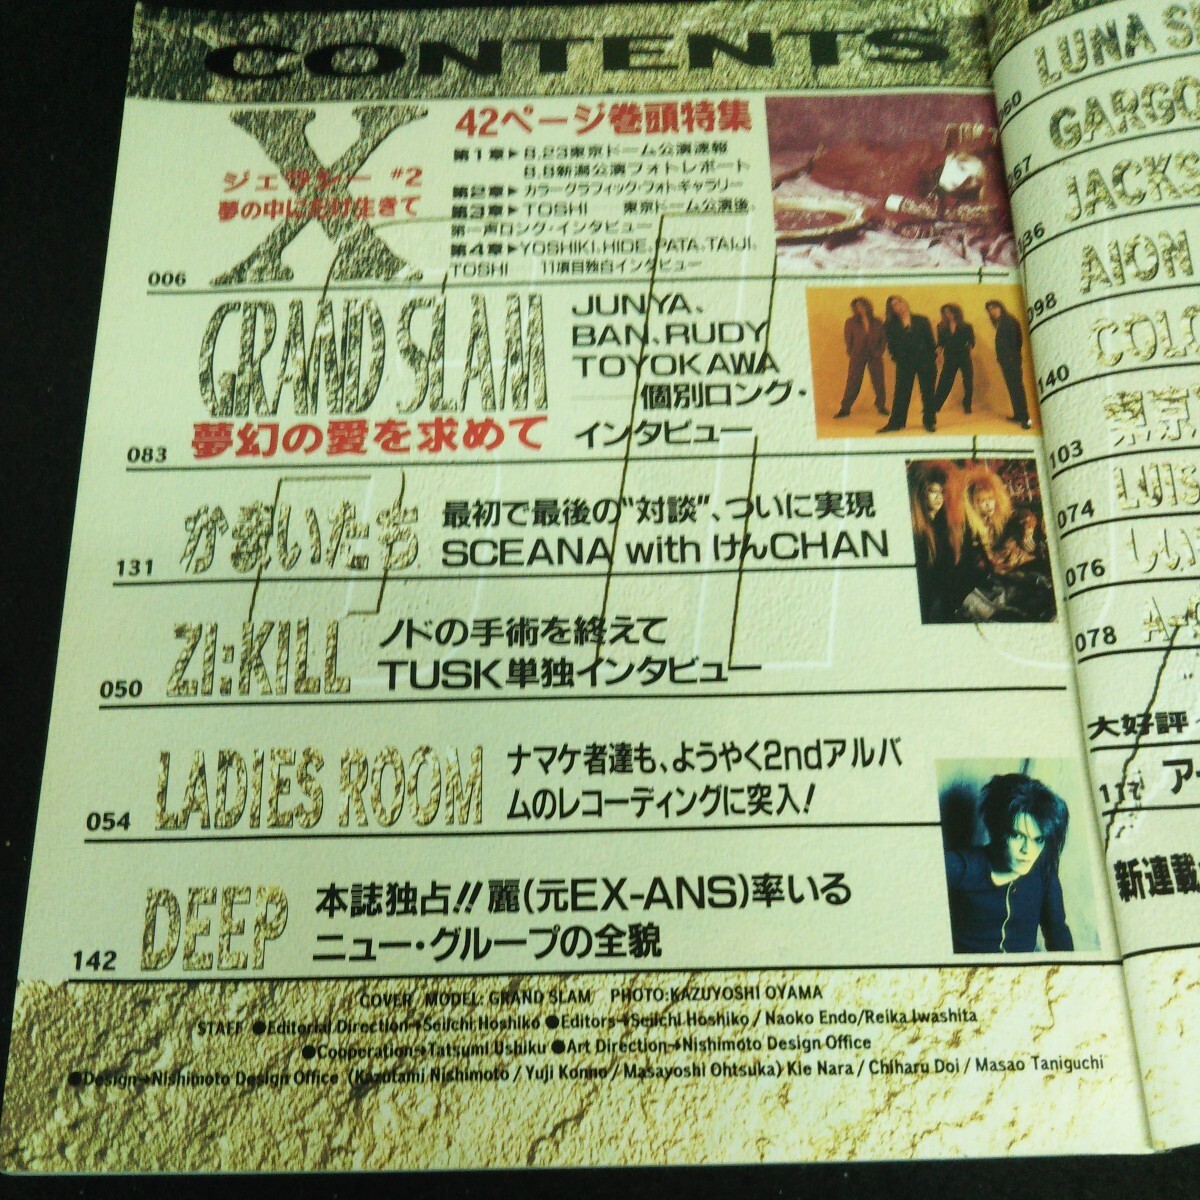 CONTENTS
X
ジェラシー #2
夢の中にだけ生きて
006
42ページ巻頭特集
第1章▶8.23東京ドーム公演速報
8.8新潟公演フォトレポート
第2章▶カラーグラフィック・フォト・ギャラリー
第3章▶TOSHI 東京ドーム公演後、
第一声ロング・インタビュー
第4章▶YOSHIKI、HIDE、PATA、TAIJI、
TOSHI 11項目独白インタビュー
GRAND SLAM
夢幻の愛を求めて
083
JUNYA、
BAN、RUDY
TOYOKAWA
個別ロング・
インタビュー
かまいたち
131
最初で最後の"対談"、ついに実現
SCEANA with けんCHAN
ZI:KILL
050
ノドの手術を終えて
TUSK単独インタビュー
LADIES ROOM
054
ナマケ者達も、ようやく2ndアルバ
ムのレコーディングに突入!
DEEP
142
本誌独占!!麗(元EX-ANS)率いる
ニュー・グループの全貌
COVER MODEL: GRAND SLAM PHOTO:KAZUYOSHI OYAMA
STAFF ●Editorial Direction→Seiichi Hoshiko ●Editors→Seiichi Hoshiko / Naoko Endo/Reika Iwashita
●Cooperation→Tatsumi Ushiku ●Art Direction→Nishimoto Design Office
●Design→Nishimoto Design Office (Kazutami Nishimoto / Yuji Konno / Masayoshi Ohtsuka) Kie Nara / Chiharu Doi / Masao Taniguchi
LUNA S
GARGO
JACKS
AION
098
COLO
140
東京
103
LUIS
074
076
078
大好評
ア
新連載